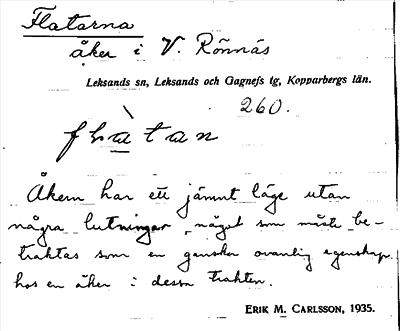 Flatarna
åker i V. Rönnäs
Leksands sn, Leksands och Gagnefs tg, Kopparbergs län.
260.
Åkern har ett jämnt läge utan
några lutningar, något som måste be-
traktas som en ganska ovanlig egenskap
hos en åker i dessa trakten.
ERIK M. CARLSSON, 1935.